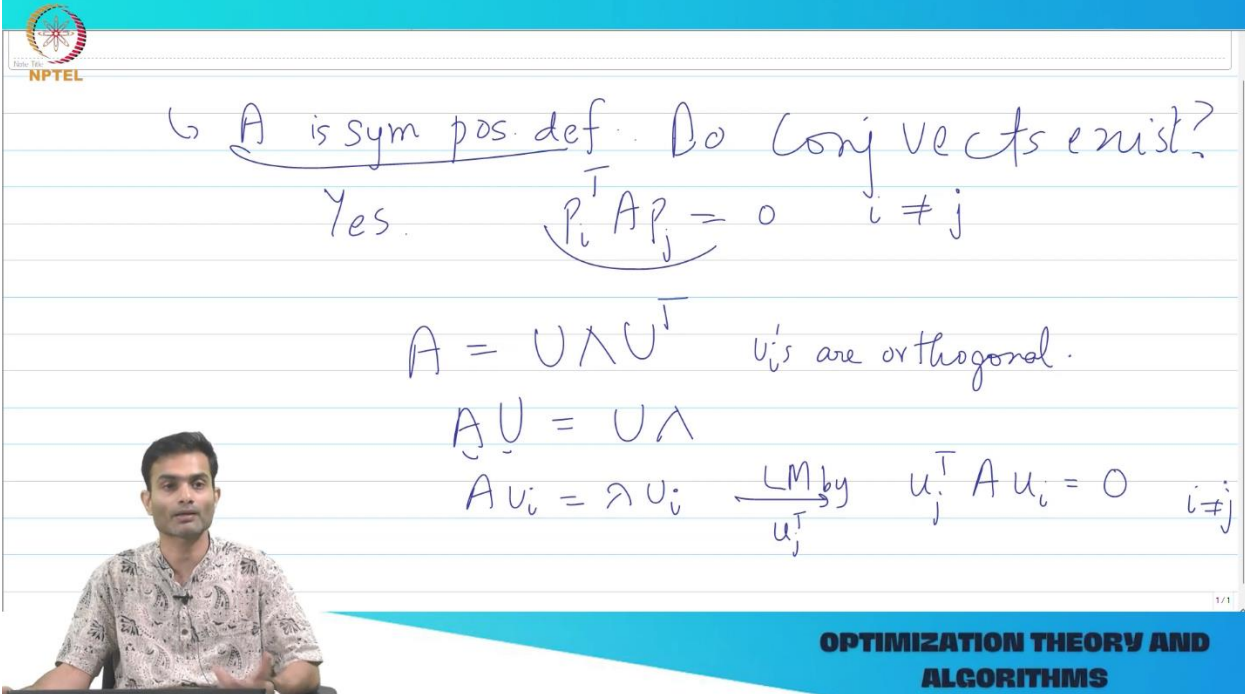 Note Title
NPTEL
↳ A is sym pos. def. Do Conj vects exist?
Yes. pᵢᵀ A pⱼ = 0 i ≠ j
A = U Λ Uᵀ uᵢ's are orthogonal.
A U = U Λ
A uᵢ = λ uᵢ LM by uⱼᵀ → uⱼᵀ A uᵢ = 0 i ≠ j
1/1
OPTIMIZATION THEORY AND
ALGORITHMS